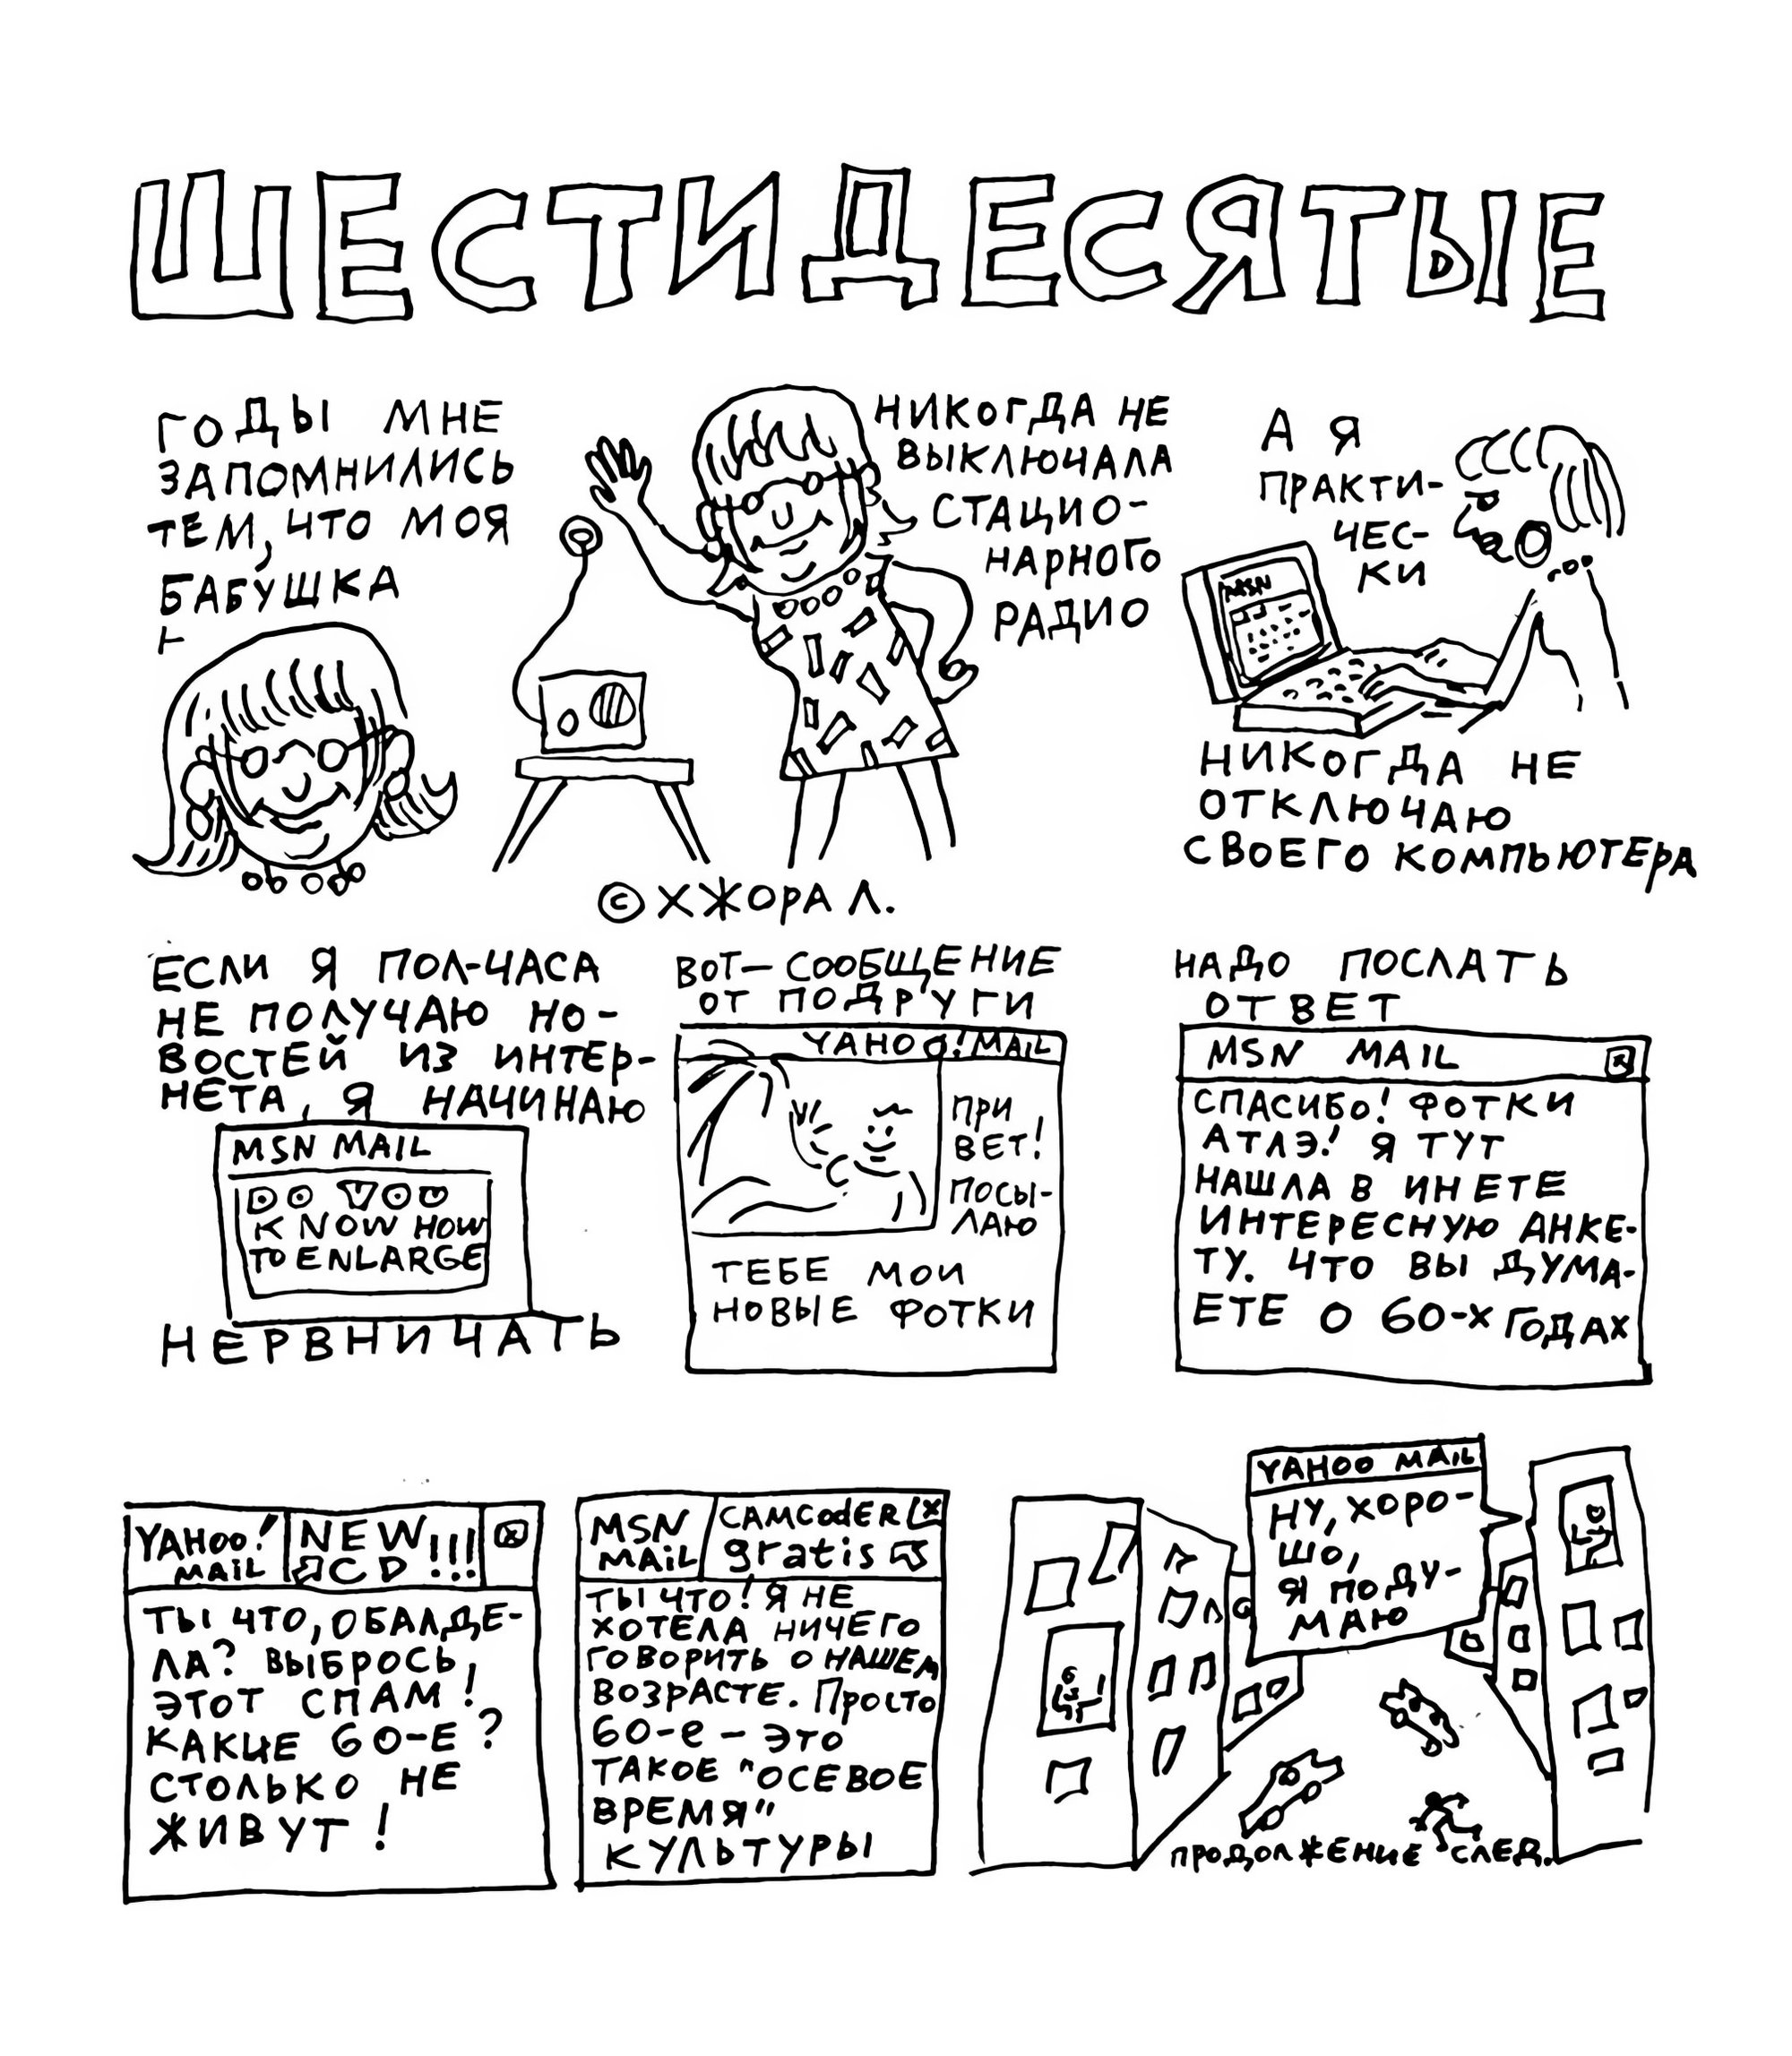 ШЕСТИДЕСЯТЫЕ
ГОДЫ МНЕ
ЗАПОМНИЛИСЬ
ТЕМ, ЧТО МОЯ
БАБУШКА
НИКОГДА НЕ
ВЫКЛЮЧАЛА
СТАЦИО-
НАРНОГО
РАДИО
А Я
ПРАКТИ-
ЧЕС-
КИ
MSN
НИКОГДА НЕ
ОТКЛЮЧАЮ
СВОЕГО КОМПЬЮТЕРА
© ХЖОРА Л.
ЕСЛИ Я ПОЛ-ЧАСА
НЕ ПОЛУЧАЮ НО-
ВОСТЕЙ ИЗ ИНТЕР-
НЕТА, Я НАЧИНАЮ
MSN MAIL
DO YOU
KNOW HOW
TO ENLARGE
НЕРВНИЧАТЬ
ВОТ — СООБЩЕНИЕ
ОТ ПОДРУГИ
YAHOO! MAIL
ПРИ
ВЕТ!
ПОСЫ-
ЛАЮ
ТЕБЕ МОИ
НОВЫЕ ФОТКИ
НАДО ПОСЛАТЬ
ОТВЕТ
MSN MAIL
СПАСИБО! ФОТКИ
АТЛЭ! Я ТУТ
НАШЛА В ИНЕТЕ
ИНТЕРЕСНУЮ АНКЕ-
ТУ. ЧТО ВЫ ДУМА-
ЕТЕ О 60-Х ГОДАХ
YAHOO! NEW!!!
MAIL ЯCD
ТЫ ЧТО, ОБАЛДЕ-
ЛА? ВЫБРОСЬ
ЭТОТ СПАМ!
КАКИЕ 60-Е?
СТОЛЬКО НЕ
ЖИВУТ!
MSN CAMCODER
MAIL gratis
ТЫ ЧТО! Я НЕ
ХОТЕЛА НИЧЕГО
ГОВОРИТЬ О НАШЕМ
ВОЗРАСТЕ. ПРОСТО
60-е — ЭТО
ТАКОЕ "ОСЕВОЕ
ВРЕМЯ"
КУЛЬТУРЫ
YAHOO MAIL
НУ, ХОРО-
ШО,
Я ПОДУ-
МАЮ
ПРОДОЛЖЕНИЕ СЛЕД.